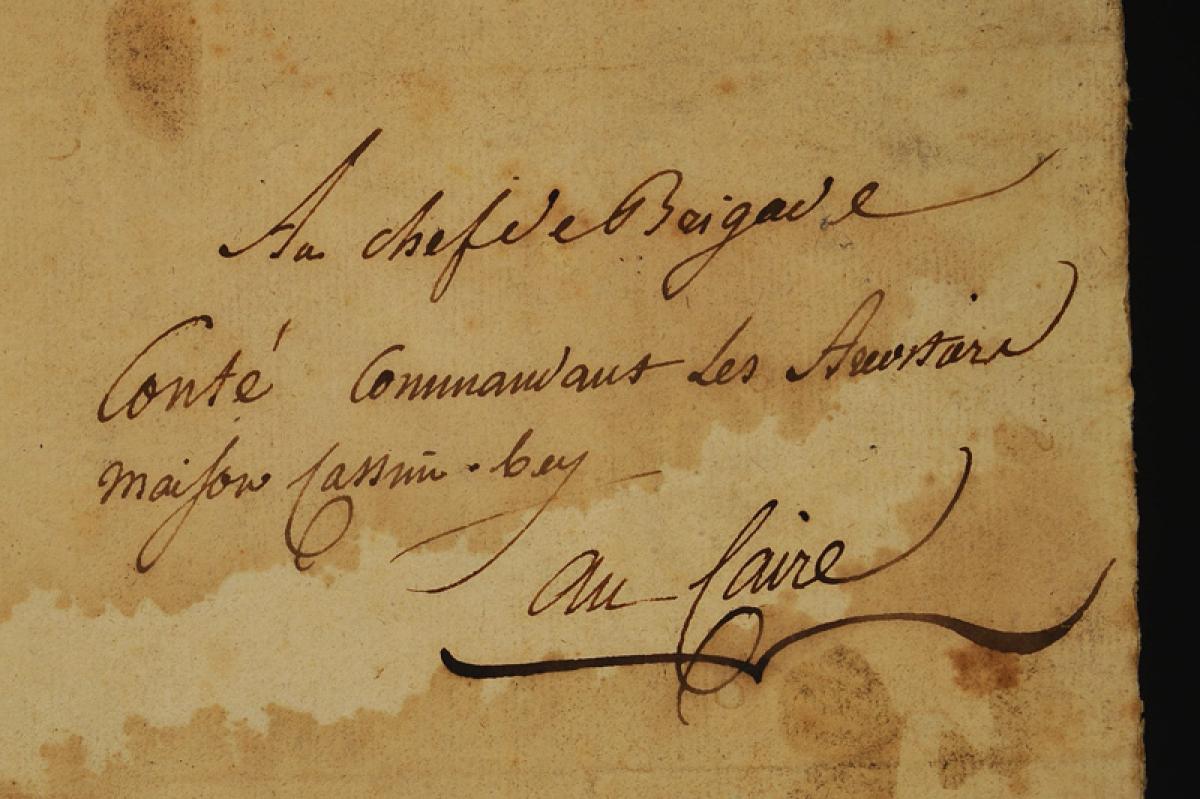 Au chef de Brigade
Conté Commandant Les
maison Cassim-bey
au Caire